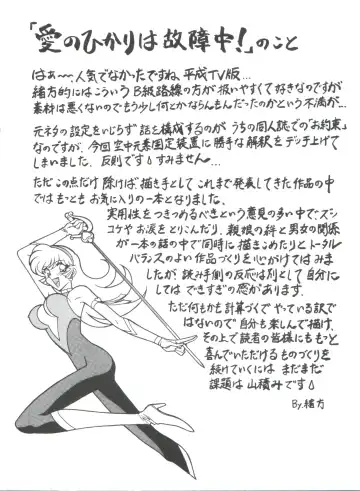 「愛のひかりは故障中!」のこと
はぁ〜、人気でなかったですね、平成TV版…
緒方的にはこういうB級路線の方が扱いやすくて好きなのですが
素材は悪くないのでもう少し何とかならんもんだったのかという不満が…
元ネタの設定をいじらず話を構成するのが うちの同人誌での"お約束"
なのですが、今回空中元素固定装置に勝手な解釈をデッチ上げて
しまいました、反則ですすみません…
ただこの点だけ除けば描き手として これまで発表してきた作品の中
ではもっともお気に入りの一本となりました。
実用性をつきつめるべきという意見の多い中で、ズッ
コケやお涙をとりこんだり、親娘の絆と男女の関係
が一本の話の中で同時に描きこめたりとトータル
バランスのよい作品づくりを心がけてはみま
したが、読み手側の反応は別として自分に
しては できすぎの感があります。
ただ何もかも計算づくで やっている訳で
はないので自分も楽しんで描け、
その上で読者の皆様にももっと
喜んでいただけるものづくりを
続けていくには まだまだ
課題は山積みです
By.緒方